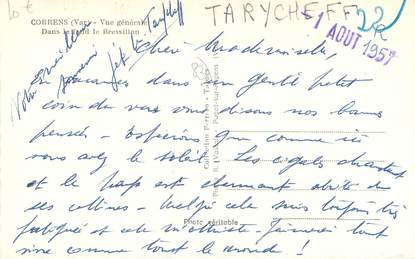 10 €
CORRENS (Var) - Vue générale
Dans le fond le Bressillon
TARYCHEFF
22
1 AOUT 1957
Chère Mademoiselle,
En vacances dans un gentil petit
coin du var nous vous disons nos bonnes
pensées - espérons que comme ici
vous avez le soleil - Les cigales chantent
et le pays est charmant abrité de
ses collines - malgré cela suis toujours très
fatiguée et cela m'attriste - J'aimerais tant
vivre comme tout le monde !
Notre meilleur
souvenir
Photo véritable